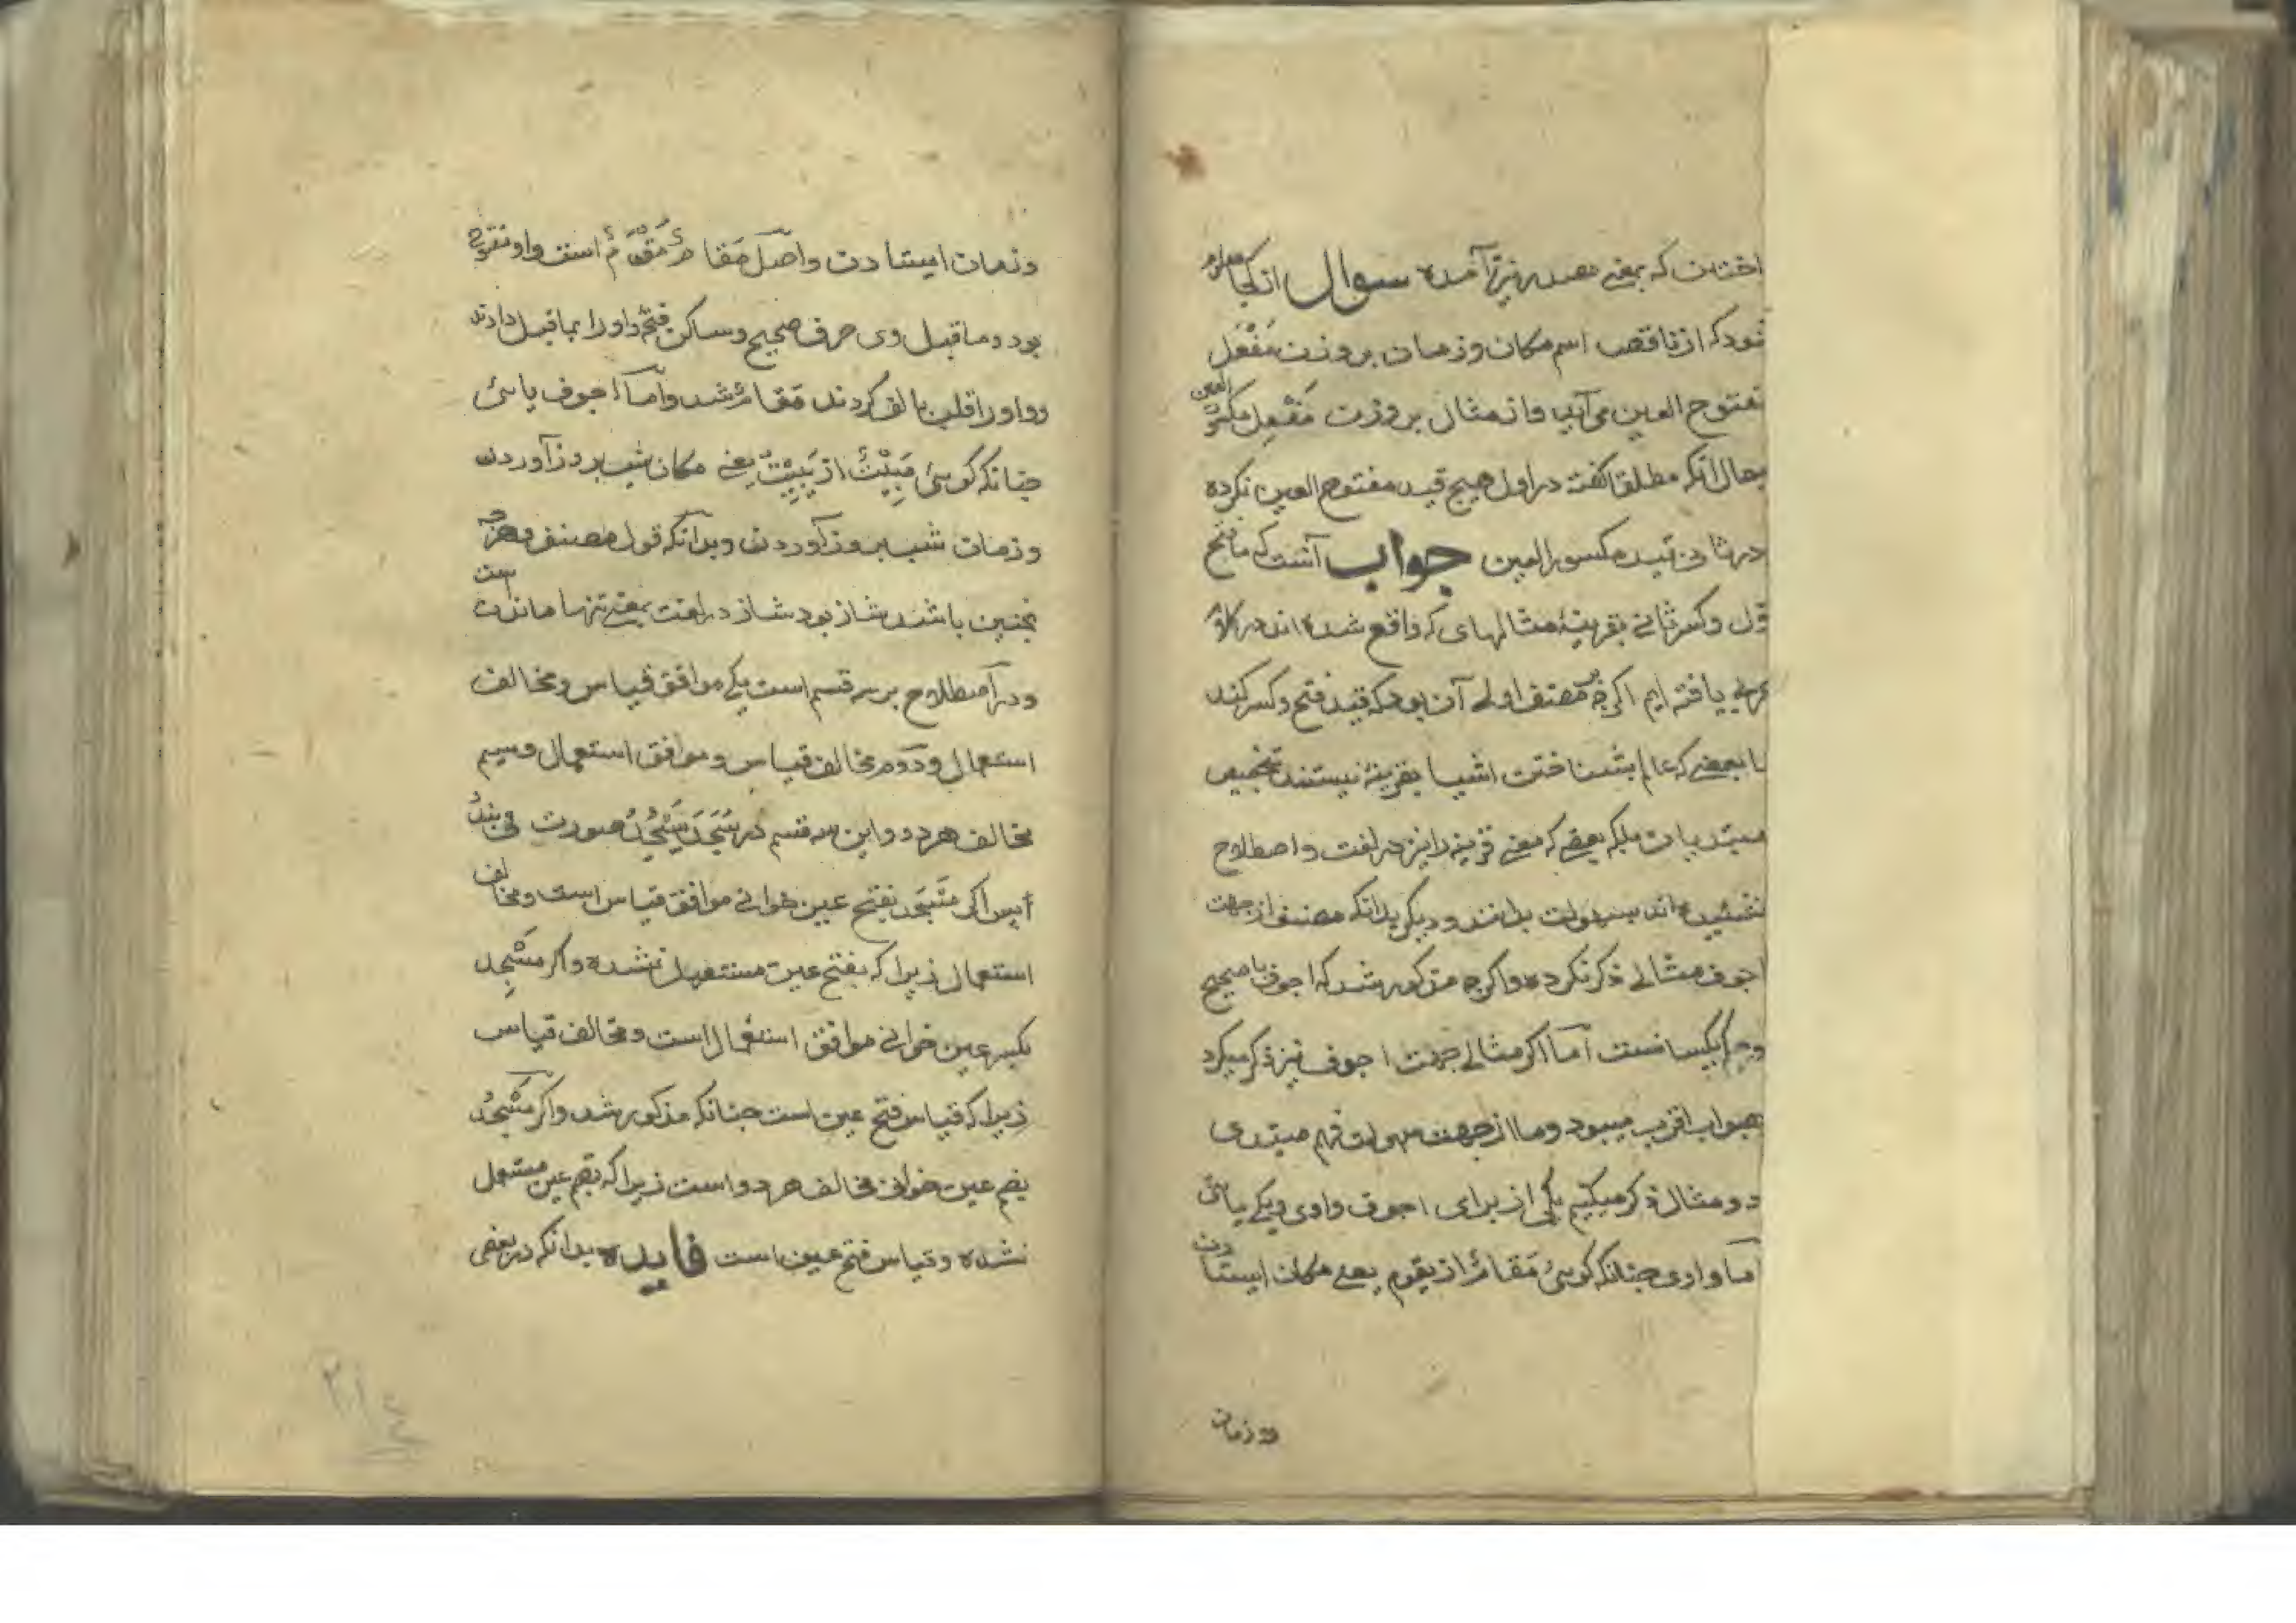 که بمعنی مصدر نیز آمده سوال از کجا معلوم
شود که از ناقص اسم مکان و زمان بر وزن مَفْعَل
مفتوح العین می آید و از مثال بر وزن مَفْعِل مکسور العین
بحال آنکه مطلق گفته در اول هیچ قید مفتوح العین نکرده
در ثانی قید مکسور العین جواب آنست که ما فتح
اول و کسر ثانی بقرینهٔ مثالهای که واقع شده اند در کلام
عربی یافته ایم اگرچه بر مصنف اولی آن بود که قید فتح و کسر کند
تا بعضی که عالم بشناختن اشیا بقرینه نیستند بتخصیص
مبتدیان بلکه بعضی که معنی قرینه را نیز در لغت و اصطلاح
نشنیده اند بسهولت بدانند و دیگر بدانکه مصنف از جهت
اجوف مثالی ذکر نکرده و اگرچه مذکور شد که اجوف با صحیح
و حکم یکسانست اما اگر مثالی جهت اجوف نیز ذکر میکرد
بصواب اقرب میبود و ما از جهت سهولت فهم مبتدی
دو مثال ذکر میکنیم یکی از برای اجوف واوی و یکی یائی
اما واوی چنانکه گویی مَقَامٌ از یقوم یعنی مکان ایستادن
و زمان
و زمان ایستادن و اصل مَقَامٌ مَقْوَمٌ است واو مفتوح
بود و ما قبل وی حرف صحیح و ساکن فتحهٔ واو را بما قبل دادند
و واو را قلب بالف کردند مَقَامٌ شد و اما اجوف یائی
چنانکه گویی مَبِیْتٌ از یَبِیْتُ یعنی مکان شب بروز آوردن
و زمان شب بروز آوردن و بدانکه قول مصنف و هر چه
نچنین باشد شاذ بود شاذ در لغت بمعنی تنها ماندن است
و در اصطلاح بر سه قسم است یکی موافق قیاس و مخالف
استعمال و دوم مخالف قیاس و موافق استعمال و سیم
مخالف هر دو و این سه قسم در سَجَدَ یَسْجُدُ صورت می بندد
پس اگر مَسْجَد بفتح عین خوانی موافق قیاس است و مخالف
استعمال زیرا که بفتح عین مستعمل نشده و اگر مَسْجِد
بکسر عین خوانی موافق استعمال است و مخالف قیاس
زیرا که قیاس فتح عین است چنانکه مذکور شد و اگر مَسْجُد
بضم عین خوانی مخالف هر دو است زیرا که بضم عین مستعمل
نشده و قیاس فتح عین است فایده بدانکه در بعضی